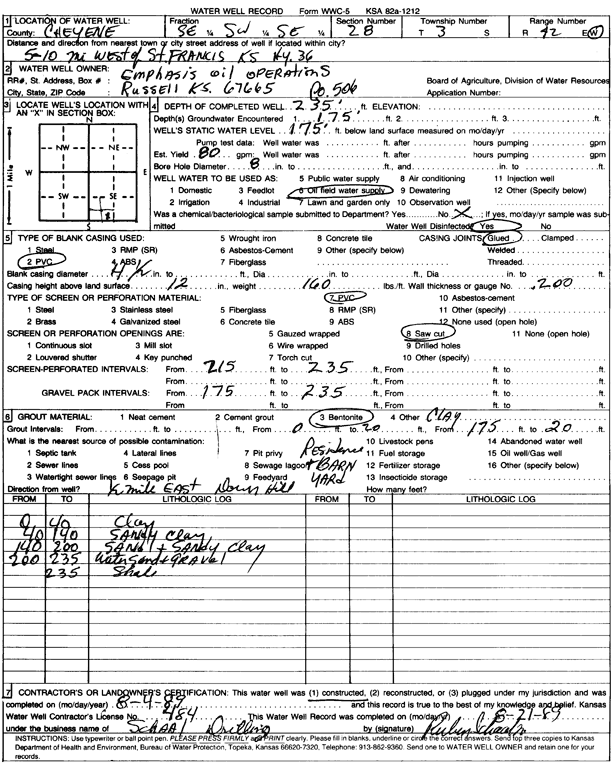 WATER WELL RECORD Form WWC-5 KSA 82a-1212
1 LOCATION OF WATER WELL: Fraction Section Number Township Number Range Number
County: CHEYENE SE ¼ SW ¼ SE ¼ 28 T 3 S R 42 E(W)
Distance and direction from nearest town or city street address of well if located within city?
5-10 mi WEST of ST. FRANCIS KS Hy. 36
2 WATER WELL OWNER: Emphasis oil OPERATIONS
RR#, St. Address, Box # : P.O. 506 Board of Agriculture, Division of Water Resources
City, State, ZIP Code : RUSSELL KS. 67665 Application Number:
3 LOCATE WELL'S LOCATION WITH AN "X" IN SECTION BOX:
N
NW NE
W E
SW SE
S
1 Mile
4 DEPTH OF COMPLETED WELL 235' ft. ELEVATION:
Depth(s) Groundwater Encountered 1. 175' ft. 2. ft. 3. ft.
WELL'S STATIC WATER LEVEL 175' ft. below land surface measured on mo/day/yr
Pump test data: Well water was ft. after hours pumping gpm
Est. Yield 80 gpm Well water was ft. after hours pumping gpm
Bore Hole Diameter 8 in. to ft., and in. to ft.
WELL WATER TO BE USED AS: 5 Public water supply 8 Air conditioning 11 Injection well
1 Domestic 3 Feedlot 6 Oil field water supply 9 Dewatering 12 Other (Specify below)
2 Irrigation 4 Industrial 7 Lawn and garden only 10 Observation well
Was a chemical/bacteriological sample submitted to Department? Yes No X; If yes, mo/day/yr sample was submitted Water Well Disinfected? Yes No
5 TYPE OF BLANK CASING USED: 5 Wrought iron 8 Concrete tile CASING JOINTS: Glued Clamped
1 Steel 3 RMP (SR) 6 Asbestos-Cement 9 Other (specify below) Welded
2 PVC 4 ABS 7 Fiberglass Threaded
Blank casing diameter 4½ in. to ft., Dia in. to ft., Dia in. to ft.
Casing height above land surface 12 in., weight 160 lbs./ft. Wall thickness or gauge No. .200
TYPE OF SCREEN OR PERFORATION MATERIAL: 7 PVC 10 Asbestos-cement
1 Steel 3 Stainless steel 5 Fiberglass 8 RMP (SR) 11 Other (specify)
2 Brass 4 Galvanized steel 6 Concrete tile 9 ABS 12 None used (open hole)
SCREEN OR PERFORATION OPENINGS ARE: 5 Gauzed wrapped 8 Saw cut 11 None (open hole)
1 Continuous slot 3 Mill slot 6 Wire wrapped 9 Drilled holes
2 Louvered shutter 4 Key punched 7 Torch cut 10 Other (specify)
SCREEN-PERFORATED INTERVALS: From 215 ft. to 235 ft., From ft. to ft.
From ft. to ft., From ft. to ft.
GRAVEL PACK INTERVALS: From 175 ft. to 235 ft., From ft. to ft.
From ft. to ft., From ft. to ft.
6 GROUT MATERIAL: 1 Neat cement 2 Cement grout 3 Bentonite 4 Other CLAY
Grout Intervals: From ft. to ft., From 0 ft. to 20 ft., From 175 ft. to 20 ft.
What is the nearest source of possible contamination: 10 Livestock pens 14 Abandoned water well
1 Septic tank 4 Lateral lines 7 Pit privy Residence 11 Fuel storage 15 Oil well/Gas well
2 Sewer lines 5 Cess pool 8 Sewage lagoon + BARN 12 Fertilizer storage 16 Other (specify below)
3 Watertight sewer lines 6 Seepage pit 9 Feedyard YARD 13 Insecticide storage
Direction from well? ¼ mile EAST Down Hill How many feet?
FROM TO LITHOLOGIC LOG FROM TO LITHOLOGIC LOG
0 40 Clay
40 140 SANDY Clay
140 200 SAND + SANDY Clay
200 235 Water Sand + GRAVEL
235 Shale
7 CONTRACTOR'S OR LANDOWNER'S CERTIFICATION: This water well was (1) constructed, (2) reconstructed, or (3) plugged under my jurisdiction and was
completed on (mo/day/year) 8-4-89 and this record is true to the best of my knowledge and belief. Kansas
Water Well Contractor's License No. 484 This Water Well Record was completed on (mo/day/yr) 8-21-89
under the business name of SCHAAL Drilling by (signature)
INSTRUCTIONS: Use typewriter or ball point pen. PLEASE PRESS FIRMLY and PRINT clearly. Please fill in blanks, underline or circle the correct answers. Send top three copies to Kansas
Department of Health and Environment, Bureau of Water Protection, Topeka, Kansas 66620-7320, Telephone: 913-862-9360. Send one to WATER WELL OWNER and retain one for your
records.